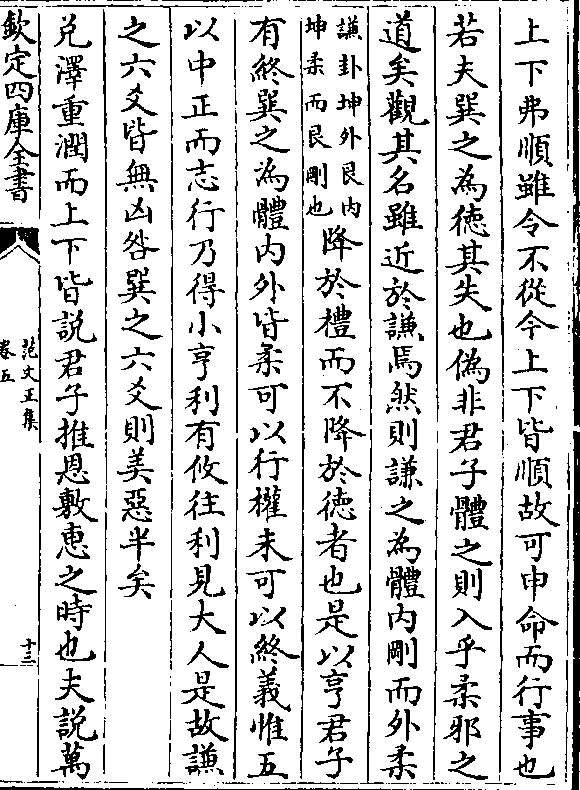 上下弗順雖令不從今上下皆順故可申命而行事也
若夫巽之為徳其失也偽非君子體之則入乎柔邪之
道矣觀其名雖近於謙焉然則謙之為體内剛而外柔
謙卦坤外艮内
坤柔而艮剛也
降於禮而不降於徳者也是以亨君子
有終巽之為體内外皆柔可以行權未可以終義惟五
以中正而志行乃得小亨利有攸往利見大人是故謙
之六爻皆無凶咎巽之六爻則美惡半矣
兑澤重潤而上下皆説君子推恩敷恵之時也夫説萬
欽定四庫全書
范文正集
卷五
十三